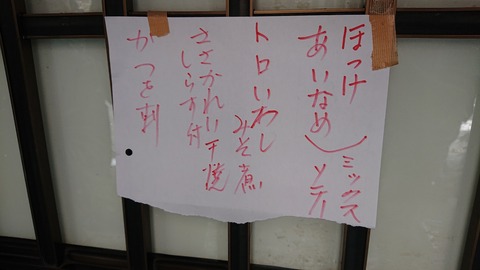 ほっけ
あいなめ
ミックス
ソテー
トロいわし
みそ煮
ささかれい干焼
しらす付
がつを刺